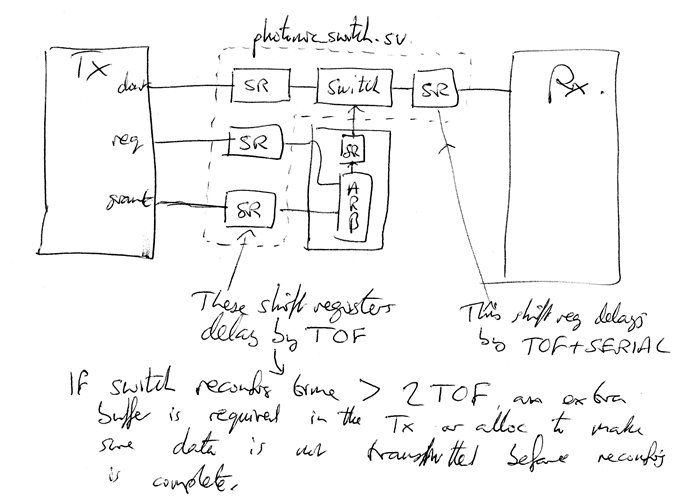 photonic_switch.sv
Tx
data
SR
Switch
SR
Rx.
req
SR
SR
grant
SR
ARB
These shift registers
delay by TOF
This shift reg delays
by TOF+SERIAL
If switch reconfig time > 2 TOF, an extra
buffer is required in the Tx or alloc to make
sure data is not transmitted before reconfig
is complete.